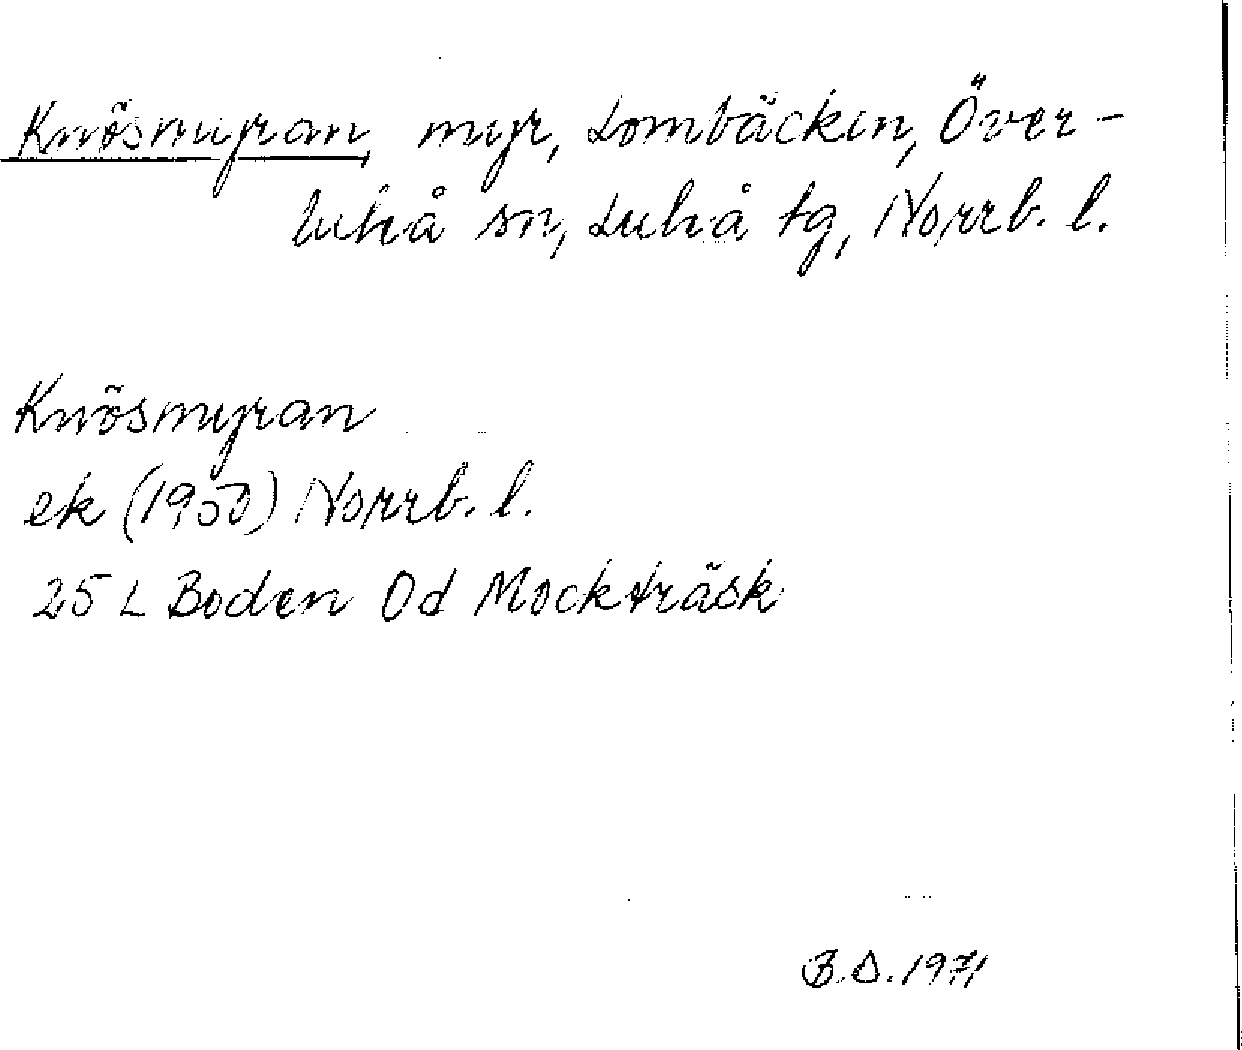 Knösmyran, myr, Lombäcken, Över-
luleå sn, Luleå tg, Norrb. l.
Knösmyran
ek (1950) Norrb. l.
25 L Boden Od Mockträsk
B.D. 1971